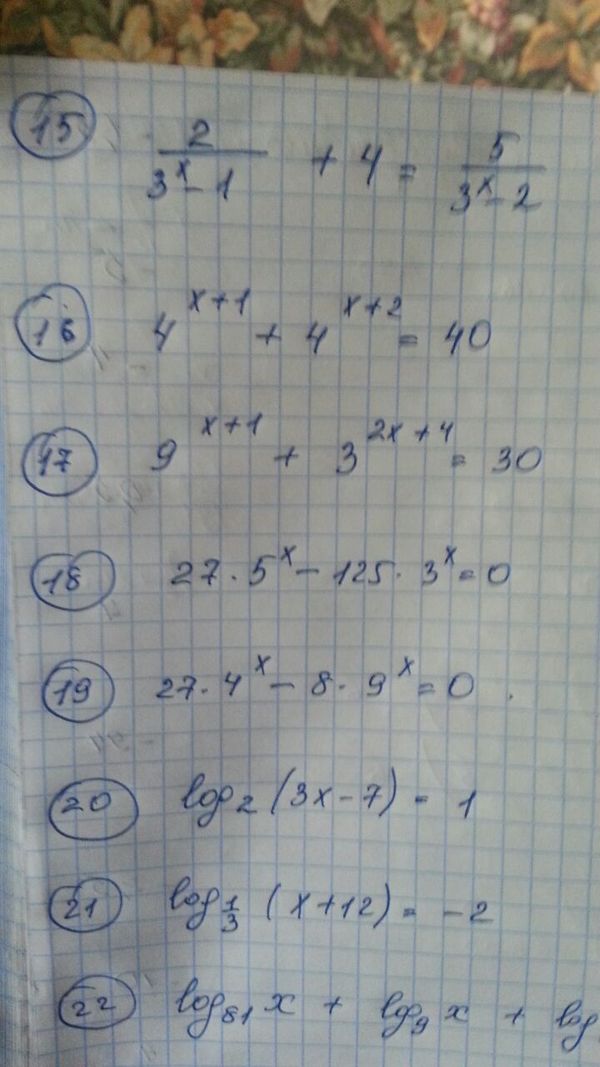 15 2/(3^x - 1) + 4 = 5/(3^x - 2)
16 4^(x+1) + 4^(x+2) = 40
17 9^(x+1) + 3^(2x+4) = 30
18 27 · 5^x - 125 · 3^x = 0
19 27 · 4^x - 8 · 9^x = 0 .
20 log_2 (3x - 7) = 1
21 log_(1/3) (x + 12) = -2
22 log_81 x + log_9 x + log